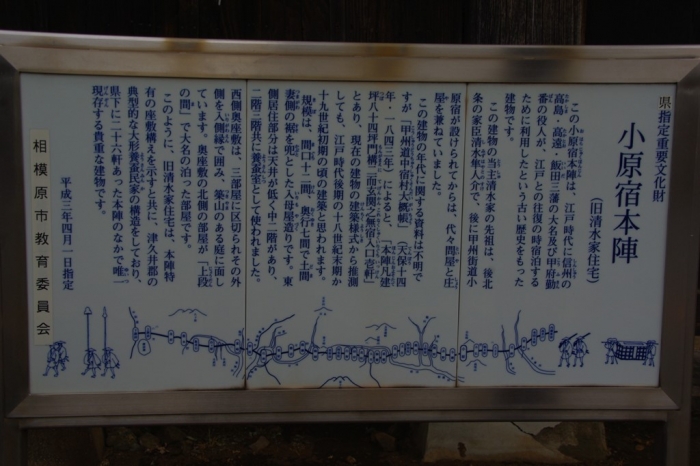 県指定重要文化財
小原宿本陣
（旧清水家住宅）
この小原宿本陣は、江戸時代に信州の
高島、高遠、飯田三藩の大名及び甲府勤
番の役人が、江戸との往復の時宿泊する
ために利用したという古い歴史をもった
建物です。
この建物の当主清水家の先祖は、後北
条の家臣清水隼人介で、後に甲州街道小
原宿が設けられてからは、代々問屋と庄
屋を兼ねていました。
この建物の年代に関する資料は不明で
すが「甲州道中宿村大概帳」（天保十四
年・一八四三年）によると、「本陣凡建
坪八十四坪門構
とあり、現在の建物の建築様式から推測
しても、江戸時代後期の十八世紀末期か
十九世紀初期の頃の建築と思われます。
規模は、間口十二間、奥行七間で土間
妻側の裾を兜とした入母屋造りです。東
側居住部分は天井が低く中二階があり、
二階三階共に養蚕室として使われました。
西側奥座敷は、三部屋に区切られその外
側を入側縁で囲み、築山のある庭に面し
ています。奥座敷の北側の部屋が、「上段
の間」で大名の泊った部屋です。
このように、旧清水家住宅は、本陣特
有の座敷構えを示すと共に、津久井郡の
典型的な大形養蚕民家の構造をしており、
県下に二十六軒あった本陣のなかで唯一
現存する貴重な建物です。
平成三年四月一日指定
相模原市教育委員会